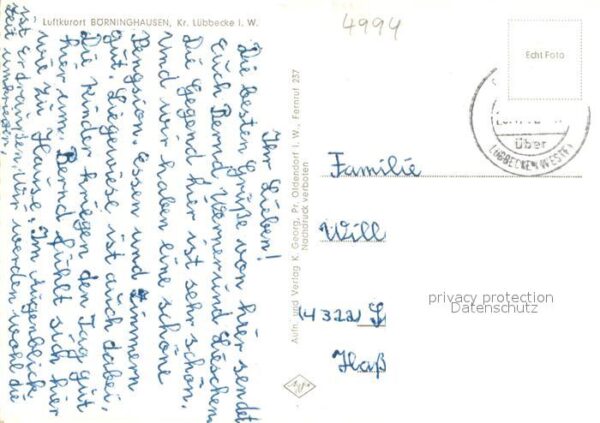 Luftkurort BÖRNINGHAUSEN, Kr. Lübbecke i. W.
4994
Echt Foto
über
LÜBBECKE (WESTF)
Ihr Lieben!
Die besten Grüße von hier sendet
Euch Bernd Werner und Lieschen.
Die Gegend hier ist sehr schön.
Und wir haben eine schöne
Pengsion. Essen und Zimmern
gut. Liegewiese ist auch dabei,
Die Kinder kriegen den Tag gut
hier um. Bernd fühlt sich hier
wie zu Hause. Im Augenblick
ist Er draußen. Wir werden wohl die
Zeit
Aufn. und Verlag K. Georg, Pr. Oldendorf i. W., Fernruf 257
Nachdruck verboten
Familie
Will
(432a)
Haß
privacy protection
Datenschutz
Agfa